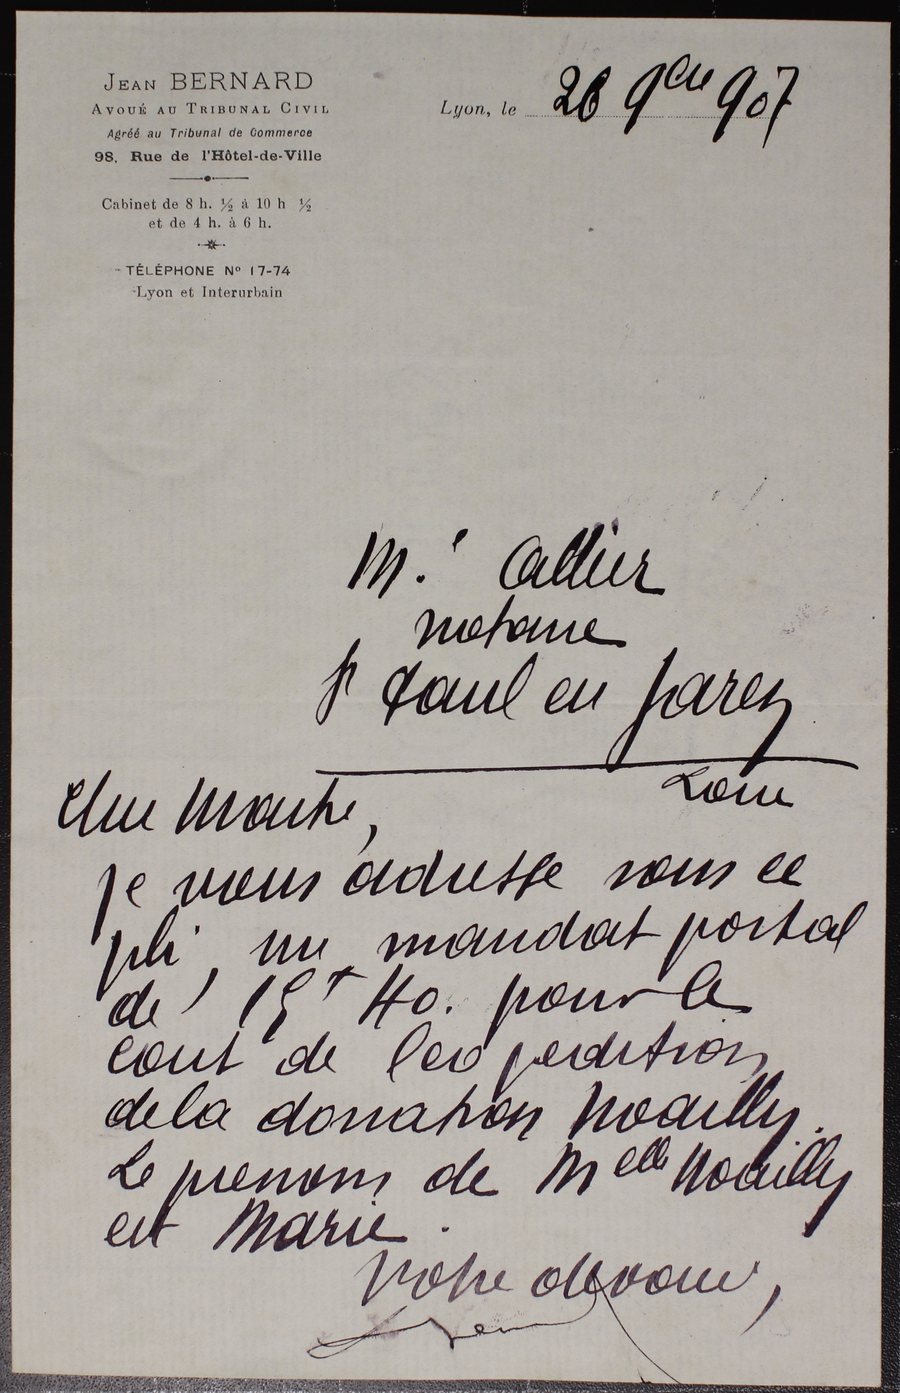 Jean BERNARD
Avoué au Tribunal Civil
Agréé au Tribunal de Commerce
98, Rue de l'Hôtel-de-Ville
Cabinet de 8 h. ½ à 10 h ½
et de 4 h. à 6 h.
TÉLÉPHONE Nº 17-74
Lyon et Interurbain
Lyon, le 26 9bre 907
M.e Allier
notaire
St Paul en Jarez
Loire
Cher Maitre,
je vous adresse sous ce
pli, un mandat postal
de 15f 40. pour le
cout de l'expédition
de la donation Noailly.
Le prenom de Melle Noailly
est Marie.
Votre devoué,